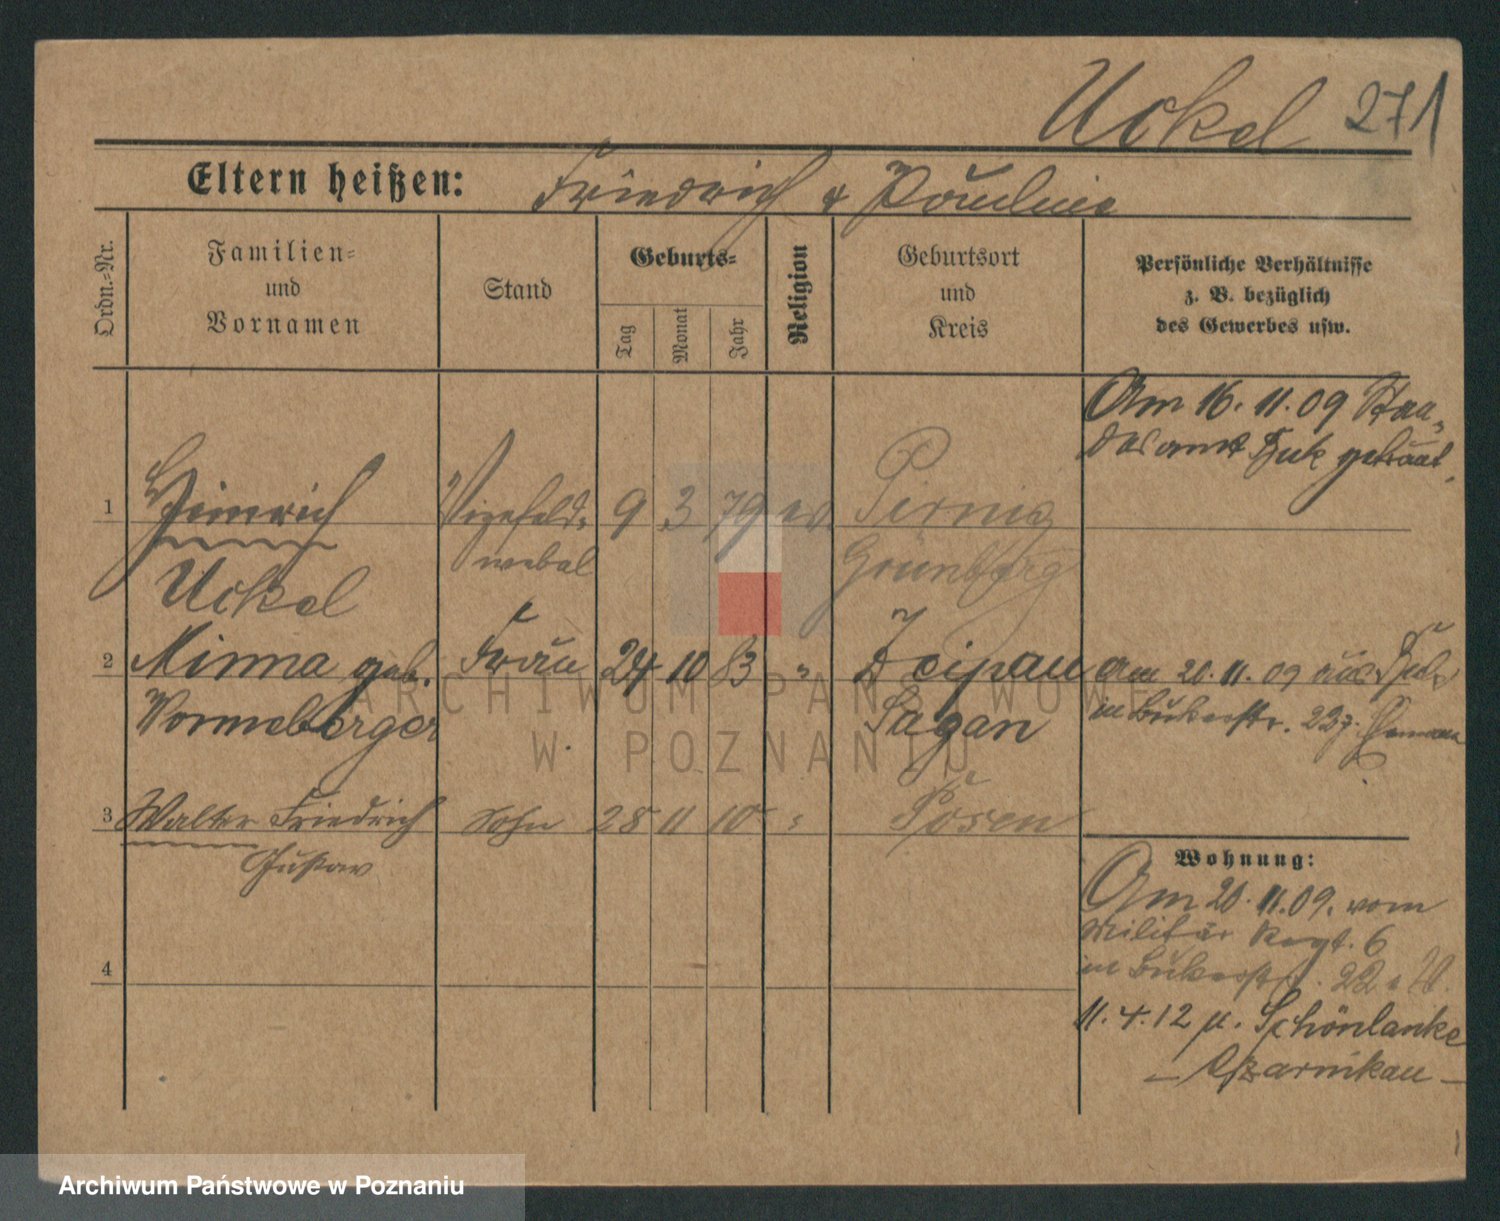 Uckel 271
Eltern heißen: Friedrich & Pauline
Ordn.-Nr.
Familien-
und
Vornamen
Stand
Geburts-
Tag
Monat
Jahr
Religion
Geburtsort
und
Kreis
Persönliche Verhältnisse
z. B. bezüglich
des Gewerbes usw.
Am 16. 11. 09 Stan-
desamt Buk getraut.
1 Heinrich Vizefeld- 9 3 79 ev. Pirnig
Uckel webel Grünberg
2 Minna geb. Frau 24 10 83 " Zeipau
Wonneberger Sagan
Am 20. 11. 09 aus Buk
in Bukerstr.
3 Walter Friedrich Sohn 28 11 10 " Posen
Gustav
4
Wohnung:
Am 20. 11. 09. vom
Militär Regt. 6
in Bukerstr. 22
11. 4. 12 n. Schönlanke
– Czarnikau –
ARCHIWUM PAŃSTWOWE
W POZNANIU
Archiwum Państwowe w Poznaniu